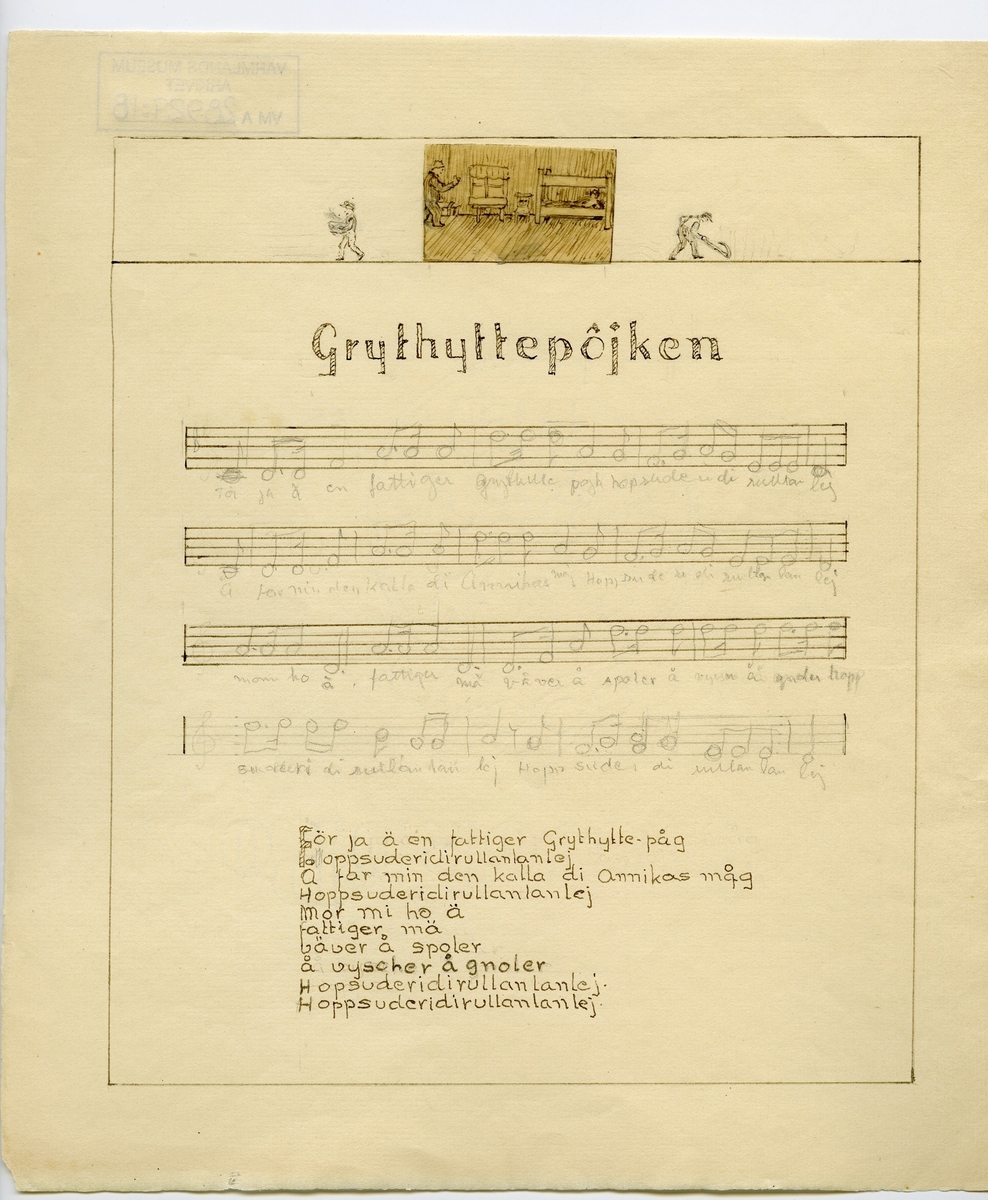 VÄRMLANDS MUSEUM
ARKIVET
VM A
Grythyttepôjken
För ja ä en fattiger pojk hopsude di rullan lej
Å far min den kalla di Annikas Hoppsude di rullan lan lej
mom ho ä fattiger mä väver å spoler å å gnoler hopp
di rullan lan lej Hopp sude di rullan lan lej
För ja ä en fattiger Grythytte-påg
Hoppsuderidirullanlanlej
Å far min den kalla di Annikas måg
Hoppsuderidirullanlanlej
Mor mi ho ä
fattiger mä
väver å spoler
å vyscher å gnoler
Hopsuderidirullanlanlej.
Hoppsuderidirullanlanlej.